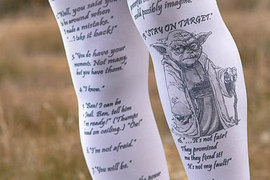 "Well, you said you
be around when
I made a mistake."
...I take it back!"
3. "You do have your
moments. Not many,
but you have them."
4. "I know."
5. "Ben! I can be
a Jedi. Ben, tell him
I'm ready!" (Thumps
head on ceiling.) "Ow!"
"I'm not afraid."
"You will be."
possibly imagine.
"STAY ON TARGET."
"...It's not fair!
They promised
me they fixed it!
It's not my fault!"